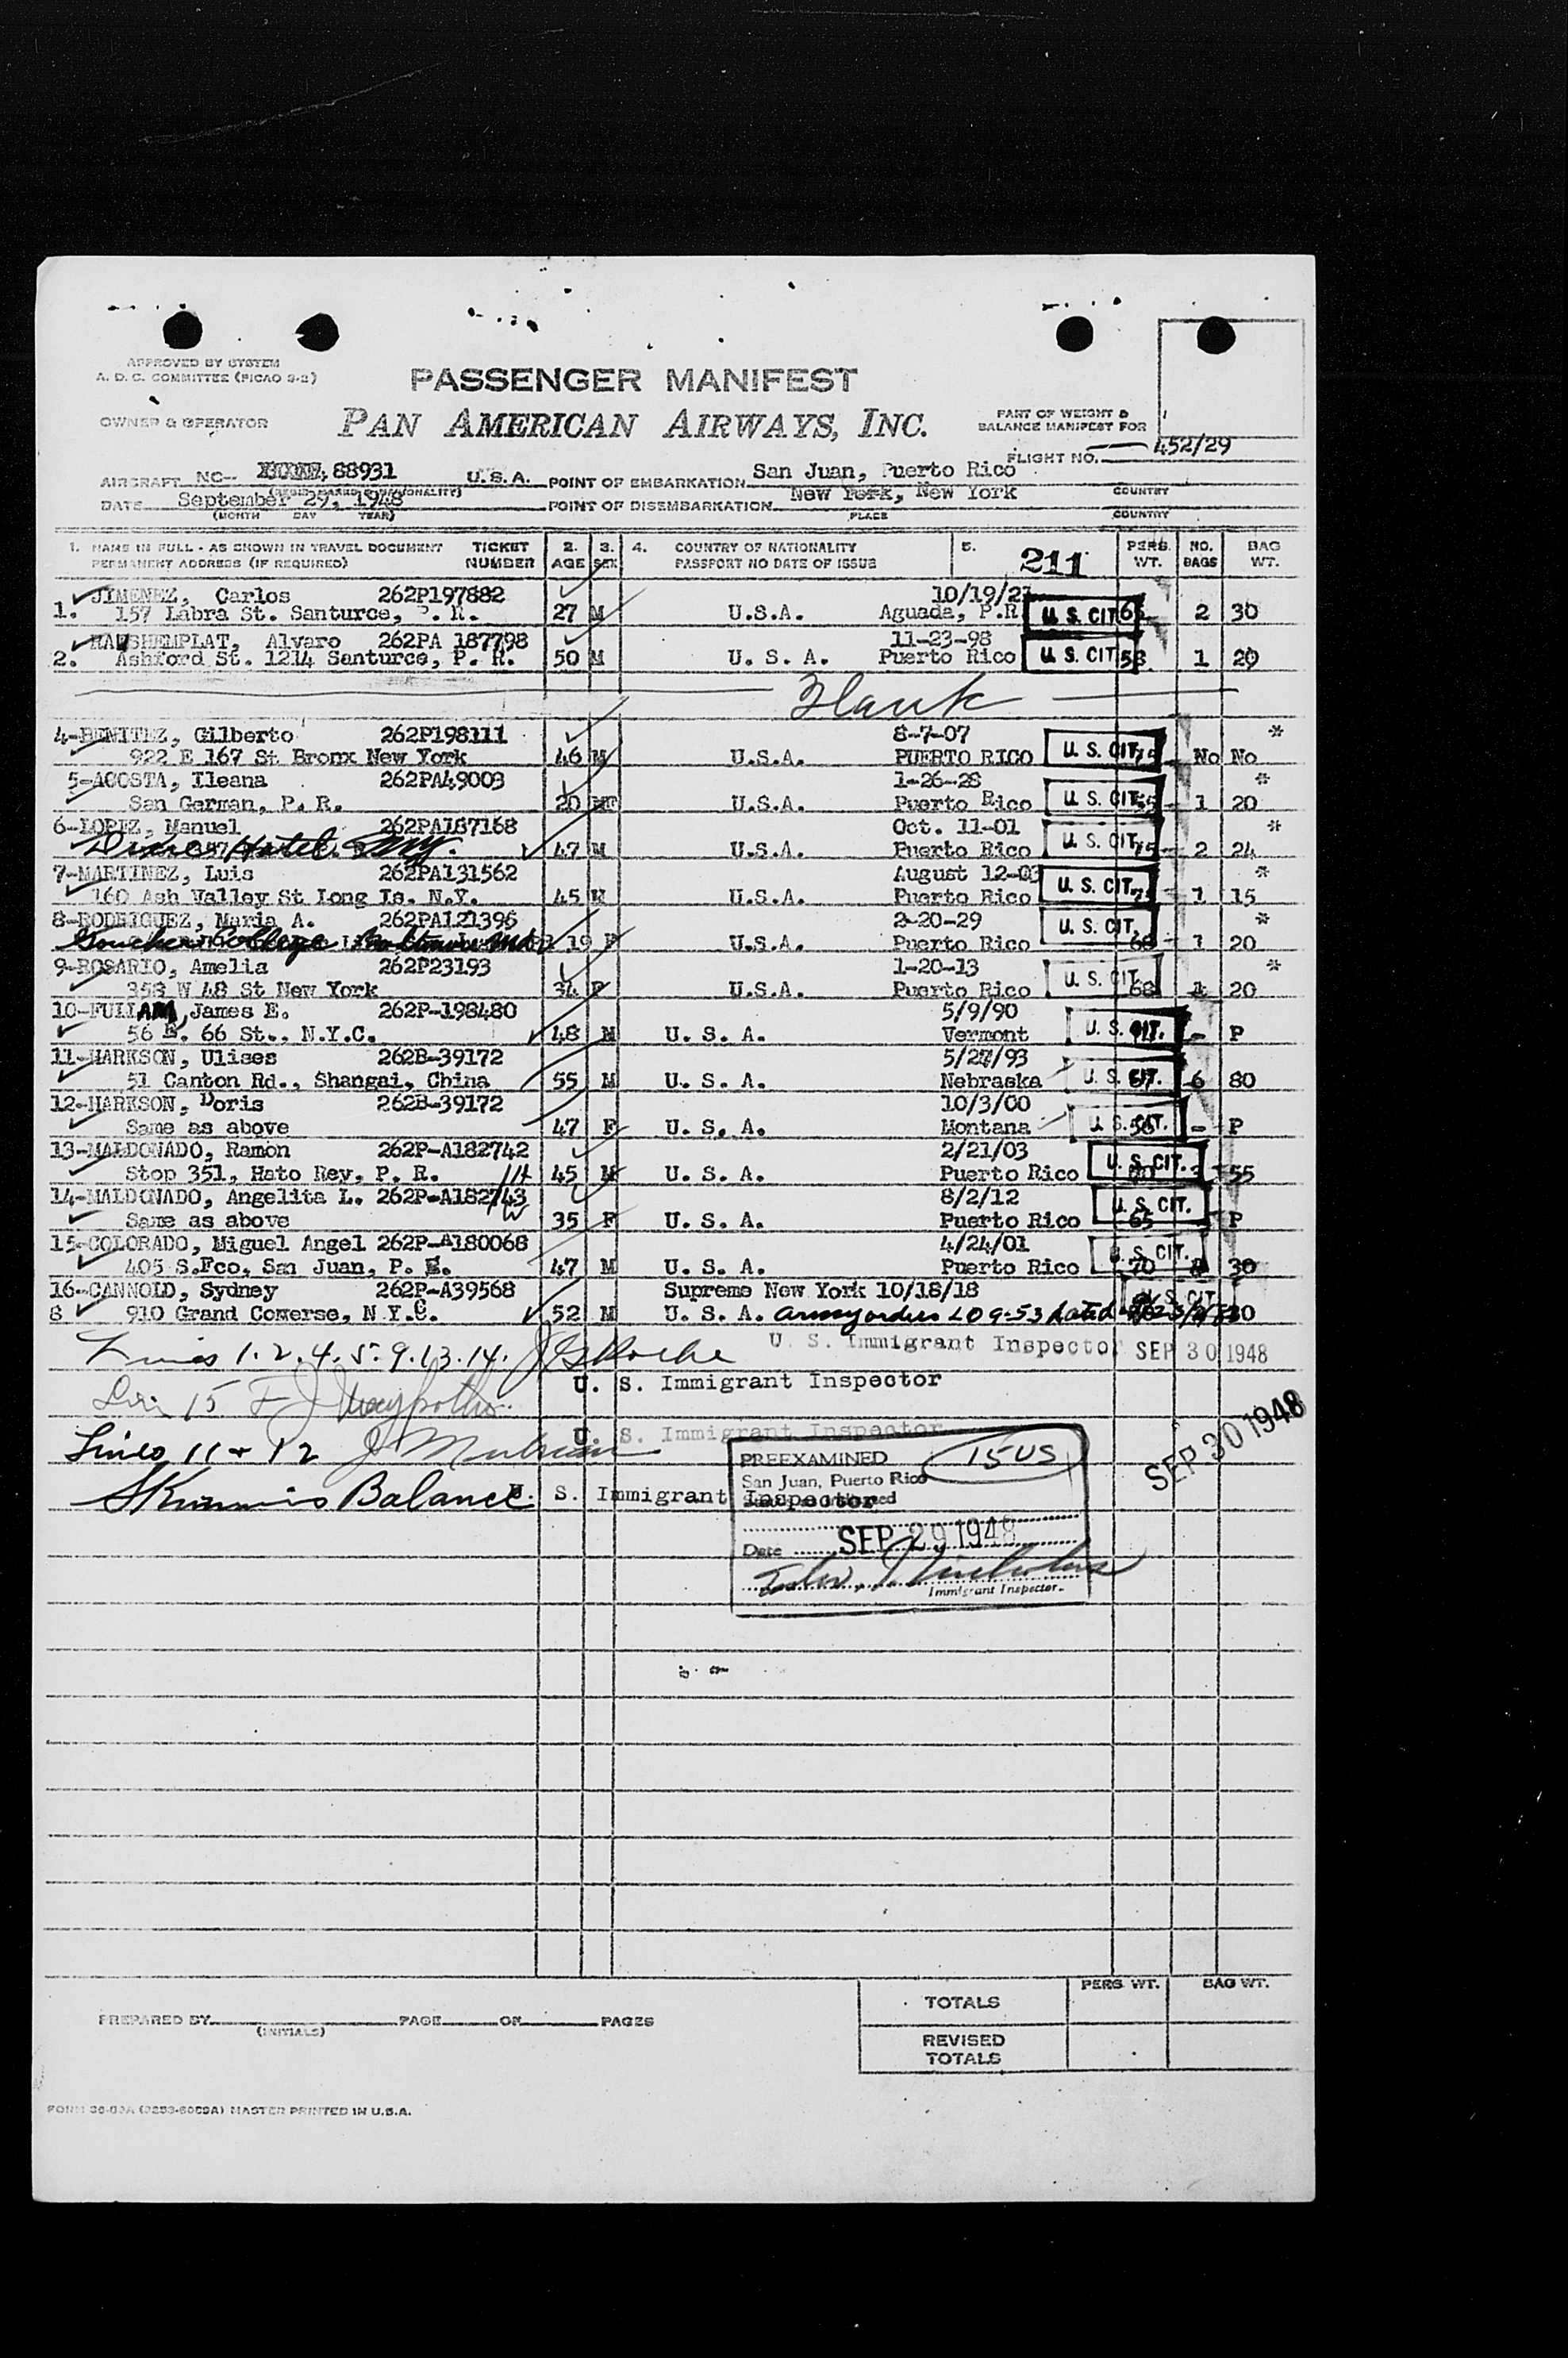 APPROVED BY SYSTEM
A. D. C. COMMITTEE (PICAO 9-2)
PASSENGER MANIFEST
OWNER & OPERATOR
PAN AMERICAN AIRWAYS, INC.
PART OF WEIGHT &
BALANCE MANIFEST FOR
FLIGHT NO. 452/29
AIRCRAFT NC-- 88931 U.S.A. POINT OF EMBARKATION San Juan, Puerto Rico
DATE September 29, 1948 POINT OF DISEMBARKATION New York, New York COUNTRY
(MONTH DAY YEAR) PLACE COUNTRY
1. NAME IN FULL - AS SHOWN IN TRAVEL DOCUMENT TICKET 2. 3. 4. COUNTRY OF NATIONALITY 5. 211 PERS. NO. BAG
PERMANENT ADDRESS (IF REQUIRED) NUMBER AGE SEX PASSPORT NO DATE OF ISSUE WT. BAGS WT.
JIMENEZ, Carlos 262P197882 10/19/21
1. 157 Labra St. Santurce, P. R. 27 M U.S.A. Aguada, P.R. U. S. CIT 2 30
Alvaro 262PA 187798 11-23-98
2. Ashford St. 1214 Santurce, P. R. 50 M U. S. A. Puerto Rico U. S. CIT 1 20
Blank
4-BENITEZ, Gilberto 262P198111 8-7-07 *
922 E 167 St Bronx New York 46 M U.S.A. PUERTO RICO U. S. CIT. 75 No No
5-ACOSTA, Ileana 262PA49003 1-26-28 *
San German, P. R. 20 F U.S.A. Puerto Rico U. S. CIT. 1 20
6-LOPEZ, Manuel 262PA187168 Oct. 11-01 *
Hotel 47 M U.S.A. Puerto Rico U. S. CIT. 75 2 24
7-MARTINEZ, Luis 262PA131562 August 12-03 *
160 Ash Valley St Long Is. N.Y. 45 M U.S.A. Puerto Rico U. S. CIT. 1 15
8-RODRIGUEZ, Maria A. 262PA121396 2-20-29 *
Goucher College Baltimore Md 19 F U.S.A. Puerto Rico U. S. CIT. 68 1 20
9-ROSARIO, Amelia 262P23193 1-20-13 *
358 W 48 St New York 34 F U.S.A. Puerto Rico U. S. CIT. 68 1 20
10-FULLAM, James E. 262P-198480 5/9/90
56 E. 66 St., N.Y.C. 48 M U. S. A. Vermont U. S. CIT. - P
11-HARKSON, Ulises 262B-39172 5/27/93
51 Canton Rd., Shangai, China 55 M U. S. A. Nebraska U. S. CIT. 6 80
12-HARKSON, Doris 262B-39172 10/3/00
Same as above 47 F U. S. A. Montana U. S. CIT. - P
13-MALDONADO, Ramon 262P-A182742 2/21/03
Stop 351, Hato Rey, P. R. 45 M U. S. A. Puerto Rico U. S. CIT. 55
14-MALDONADO, Angelita L. 262P-A182743 8/2/12
Same as above 35 F U. S. A. Puerto Rico U. S. CIT. 65 P
15-COLORADO, Miguel Angel 262P-A180068 4/24/01
405 S.Fco, San Juan, P. R. 47 M U. S. A. Puerto Rico U. S. CIT. 70 30
16-CANNOLD, Sydney 262P-A39568 Supreme New York 10/18/18 U. S. CIT.
8 910 Grand Cowerse, N.Y.C. 52 M U. S. A. Army orders LO 9-53 dated
Lines 1. 2. 4. 5. 9. 13. 14. U. S. Immigrant Inspector SEP 30 1948
15 U. S. Immigrant Inspector
U. S. Immigrant Inspector
Lines 11 + 12
SEP 30 1948
Balance U. S. Immigrant Inspector
PREEXAMINED 15 US
San Juan, Puerto Rico
Date SEP 29 1948
Immigrant Inspector.
TOTALS PERS. WT. BAG WT.
PREPARED BY PAGE OF PAGES
(INITIALS)
REVISED
TOTALS
MASTER PRINTED IN U.S.A.